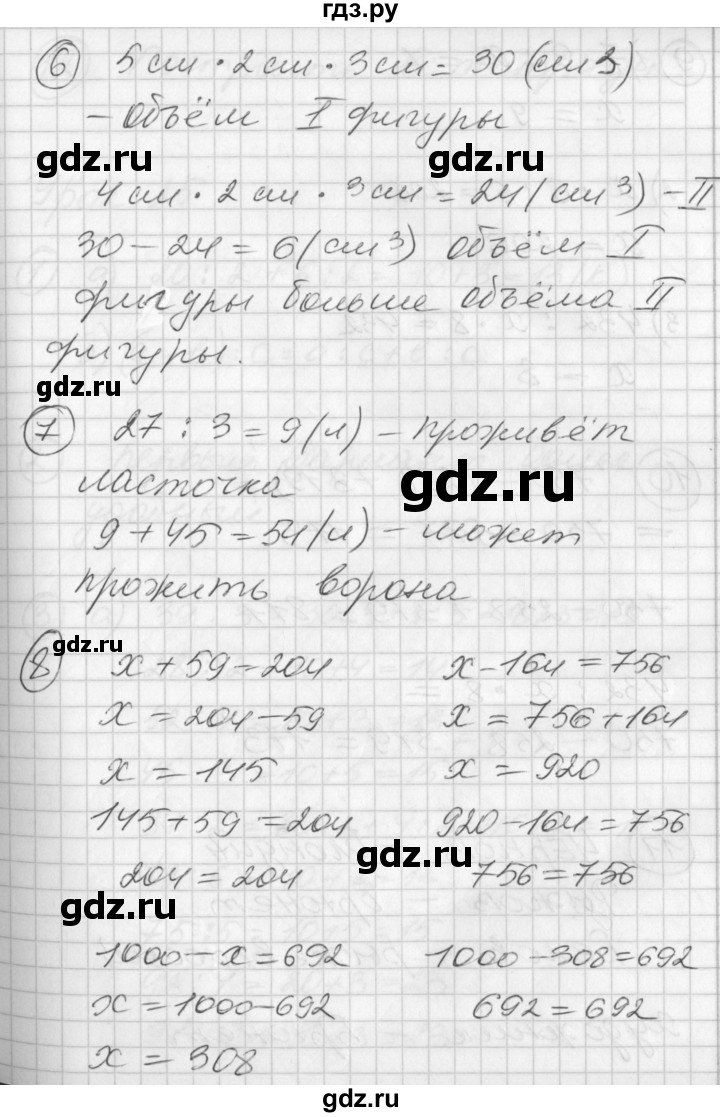 гдз.ру
6 5 см · 2 см · 3 см = 30 (см 3)
– объём I фигуры
gdz.ru gdz.ru
4 см · 2 см · 3 см = 24 (см 3) – II
30 – 24 = 6 (см 3) объём I
фигуры больше объёма II
фигуры.
gdz.ru
7 27 : 3 = 9 (л) – проживёт
ласточка gdz.ru
9 + 45 = 54 (л) – может
прожить ворона
gdz.ru
8 x + 59 = 204 x – 164 = 756
x = 204 – 59 x = 756 + 164
x = 145 x = 920
145 + 59 = 204 920 – 164 = 756
gdz.ru
204 = 204 756 = 756
gdz.ru
1000 – x = 692 1000 – 308 = 692
x = 1000 – 692 692 = 692
x = 308
gdz.ru gdz.ru